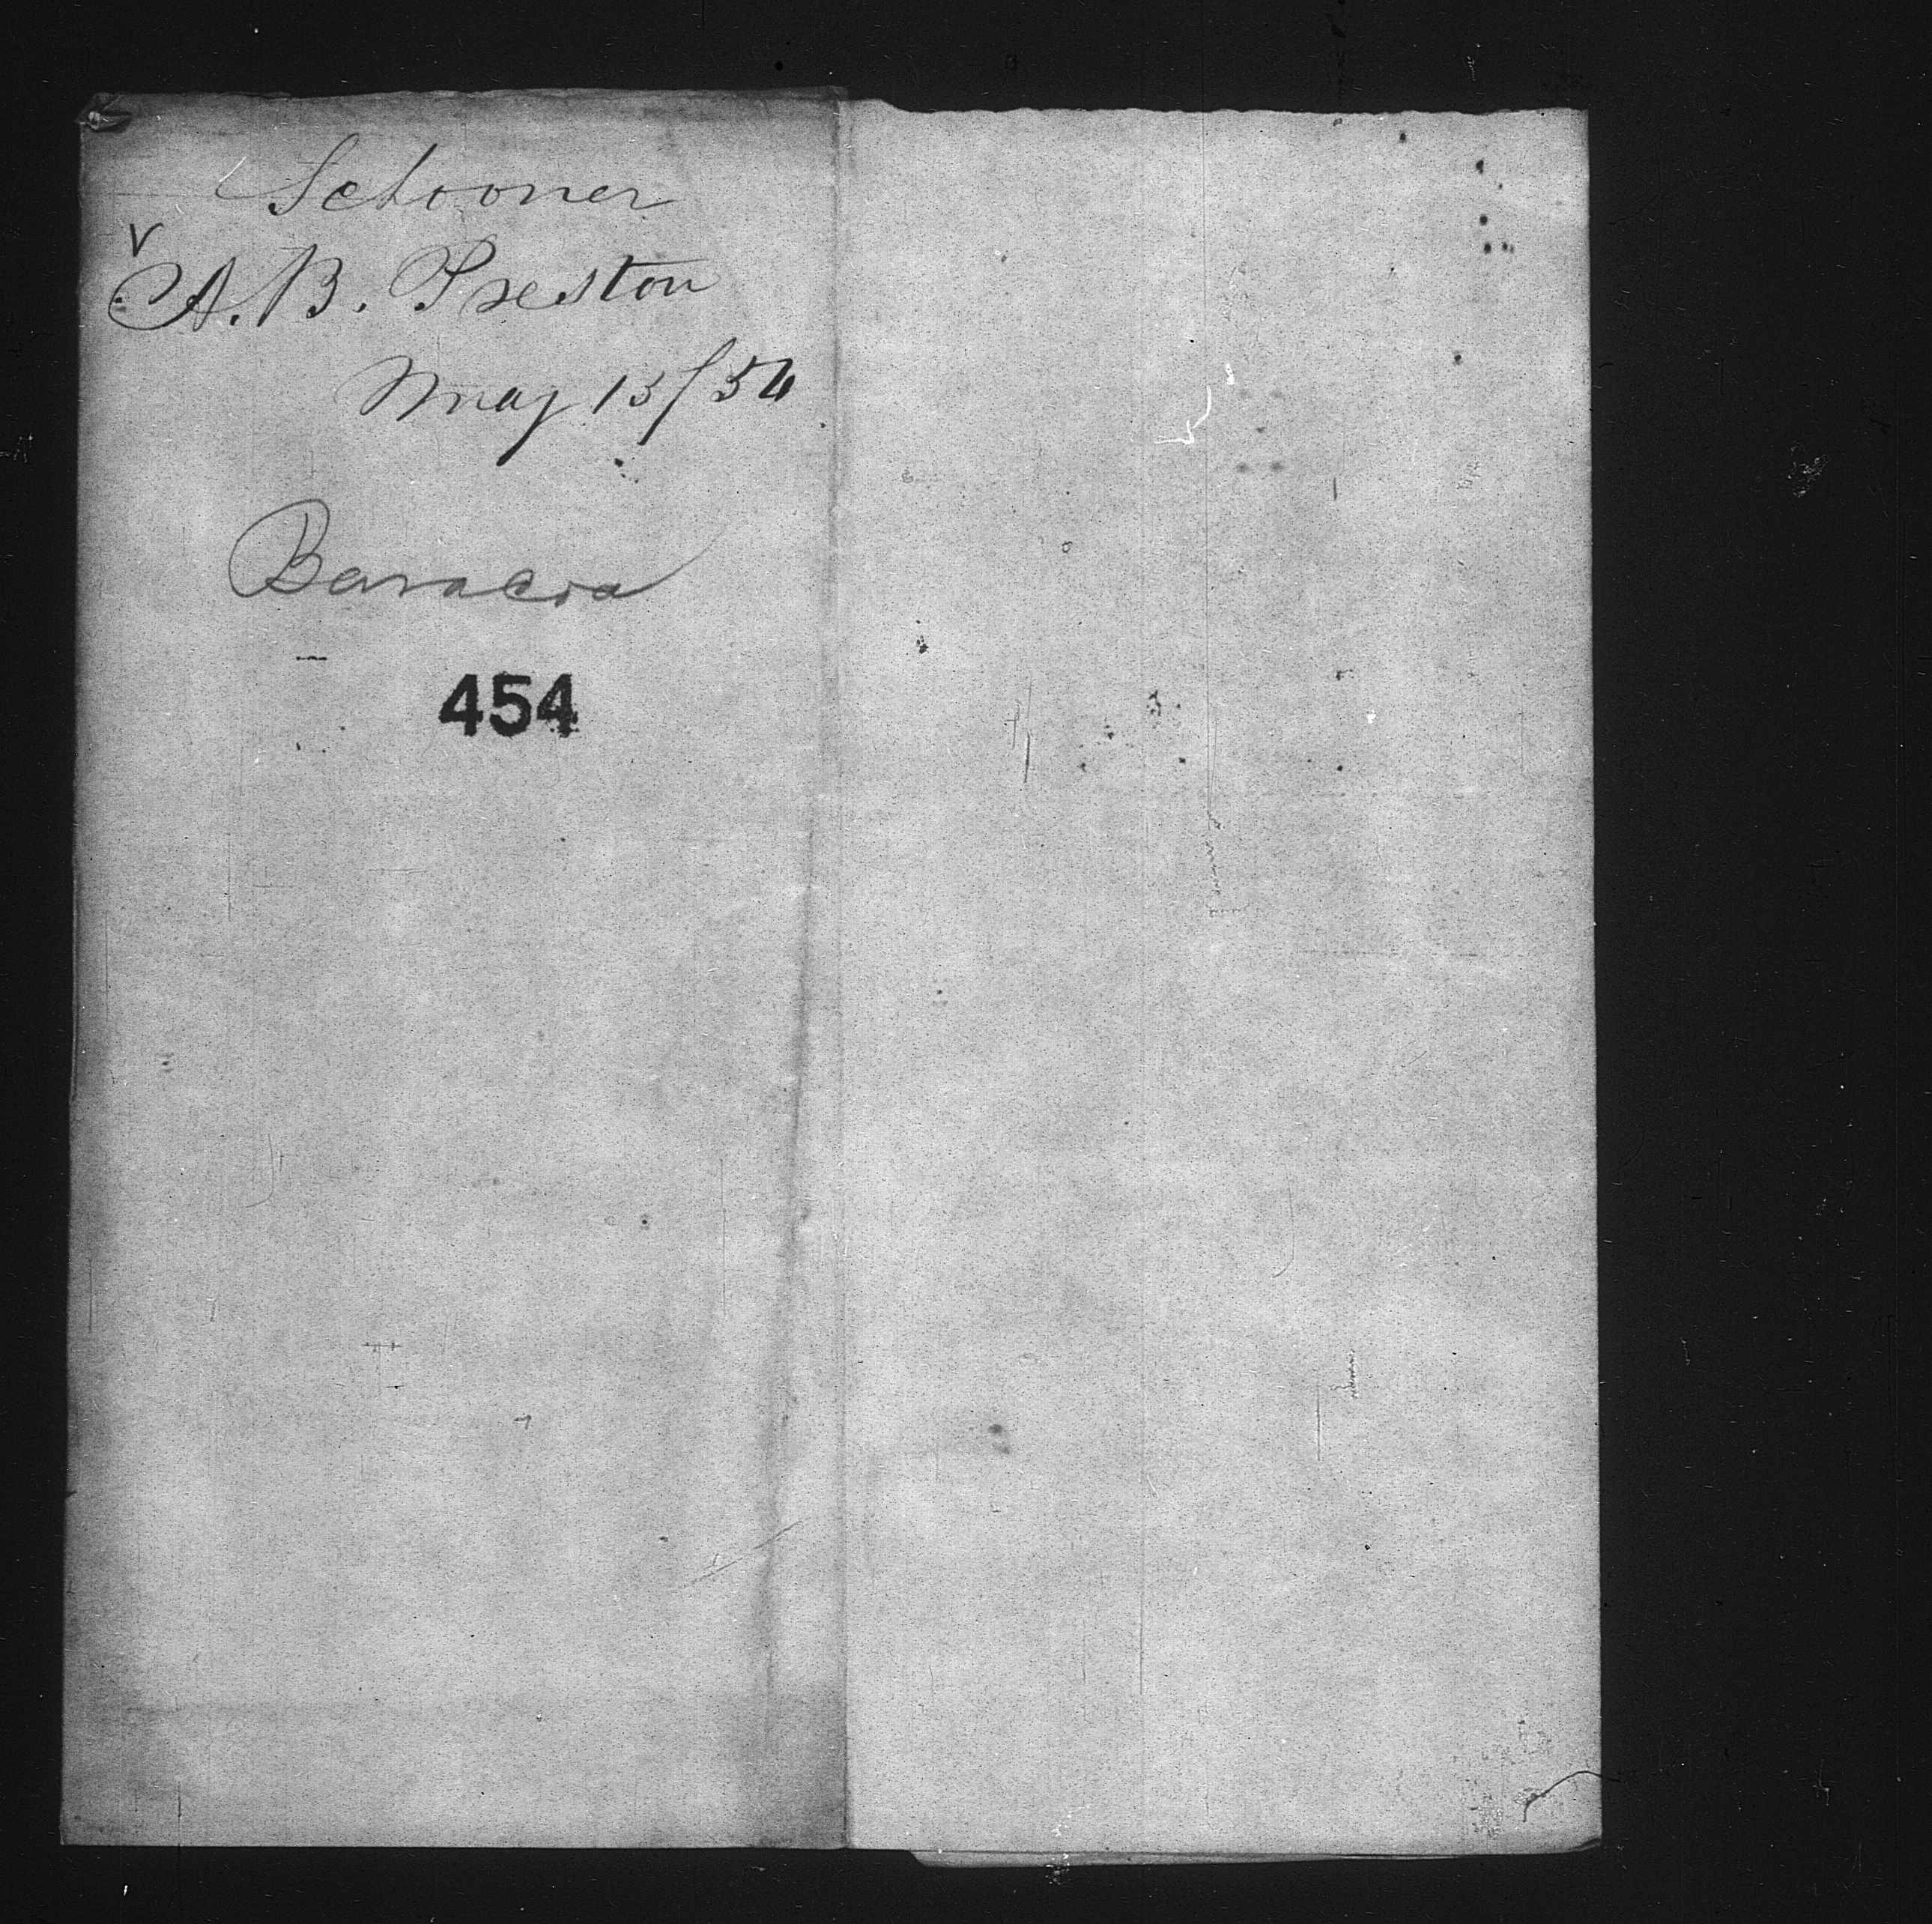 Schooner
V
A. B. Preston
May 15/54
Baracoa
454